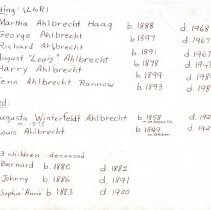 ding: (L to R)
Martha Ahlbrecht Haag b. 1888 d. 1968
George Ahlbrecht b. 1897 d. 1967
Richard Ahlbrecht b. 1891 d. 1967
August "Louis" Ahlbrecht b. 1878 d. 194
Harry Ahlbrecht b. 1899 d. 198
Lena Ahlbrecht Rannow b. 1893 d. 198
ed:
Augusta Winterfeldt Ahlbrecht b. 1858
m. 1875
Louis Ahlbrecht b. 1849
3 children - deceased
Bernard b. 1880 d. 1882
Johnny b. 1886 d. 1891
Sophie "Annie" b. 1883 d. 1900